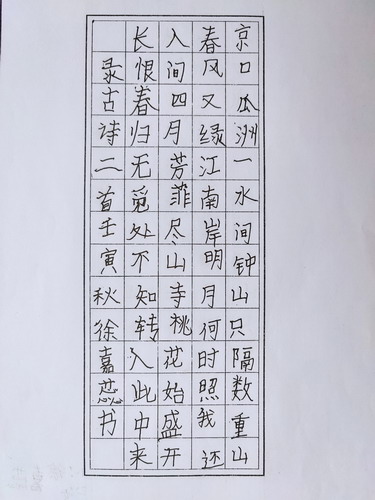 京口瓜洲一水间钟山只隔数重山
春风又绿江南岸明月何时照我还
入间四月芳菲尽山寺桃花始盛开
长恨春归无觅处不知转入此中来
录古诗二首壬寅秋徐嘉蕊书